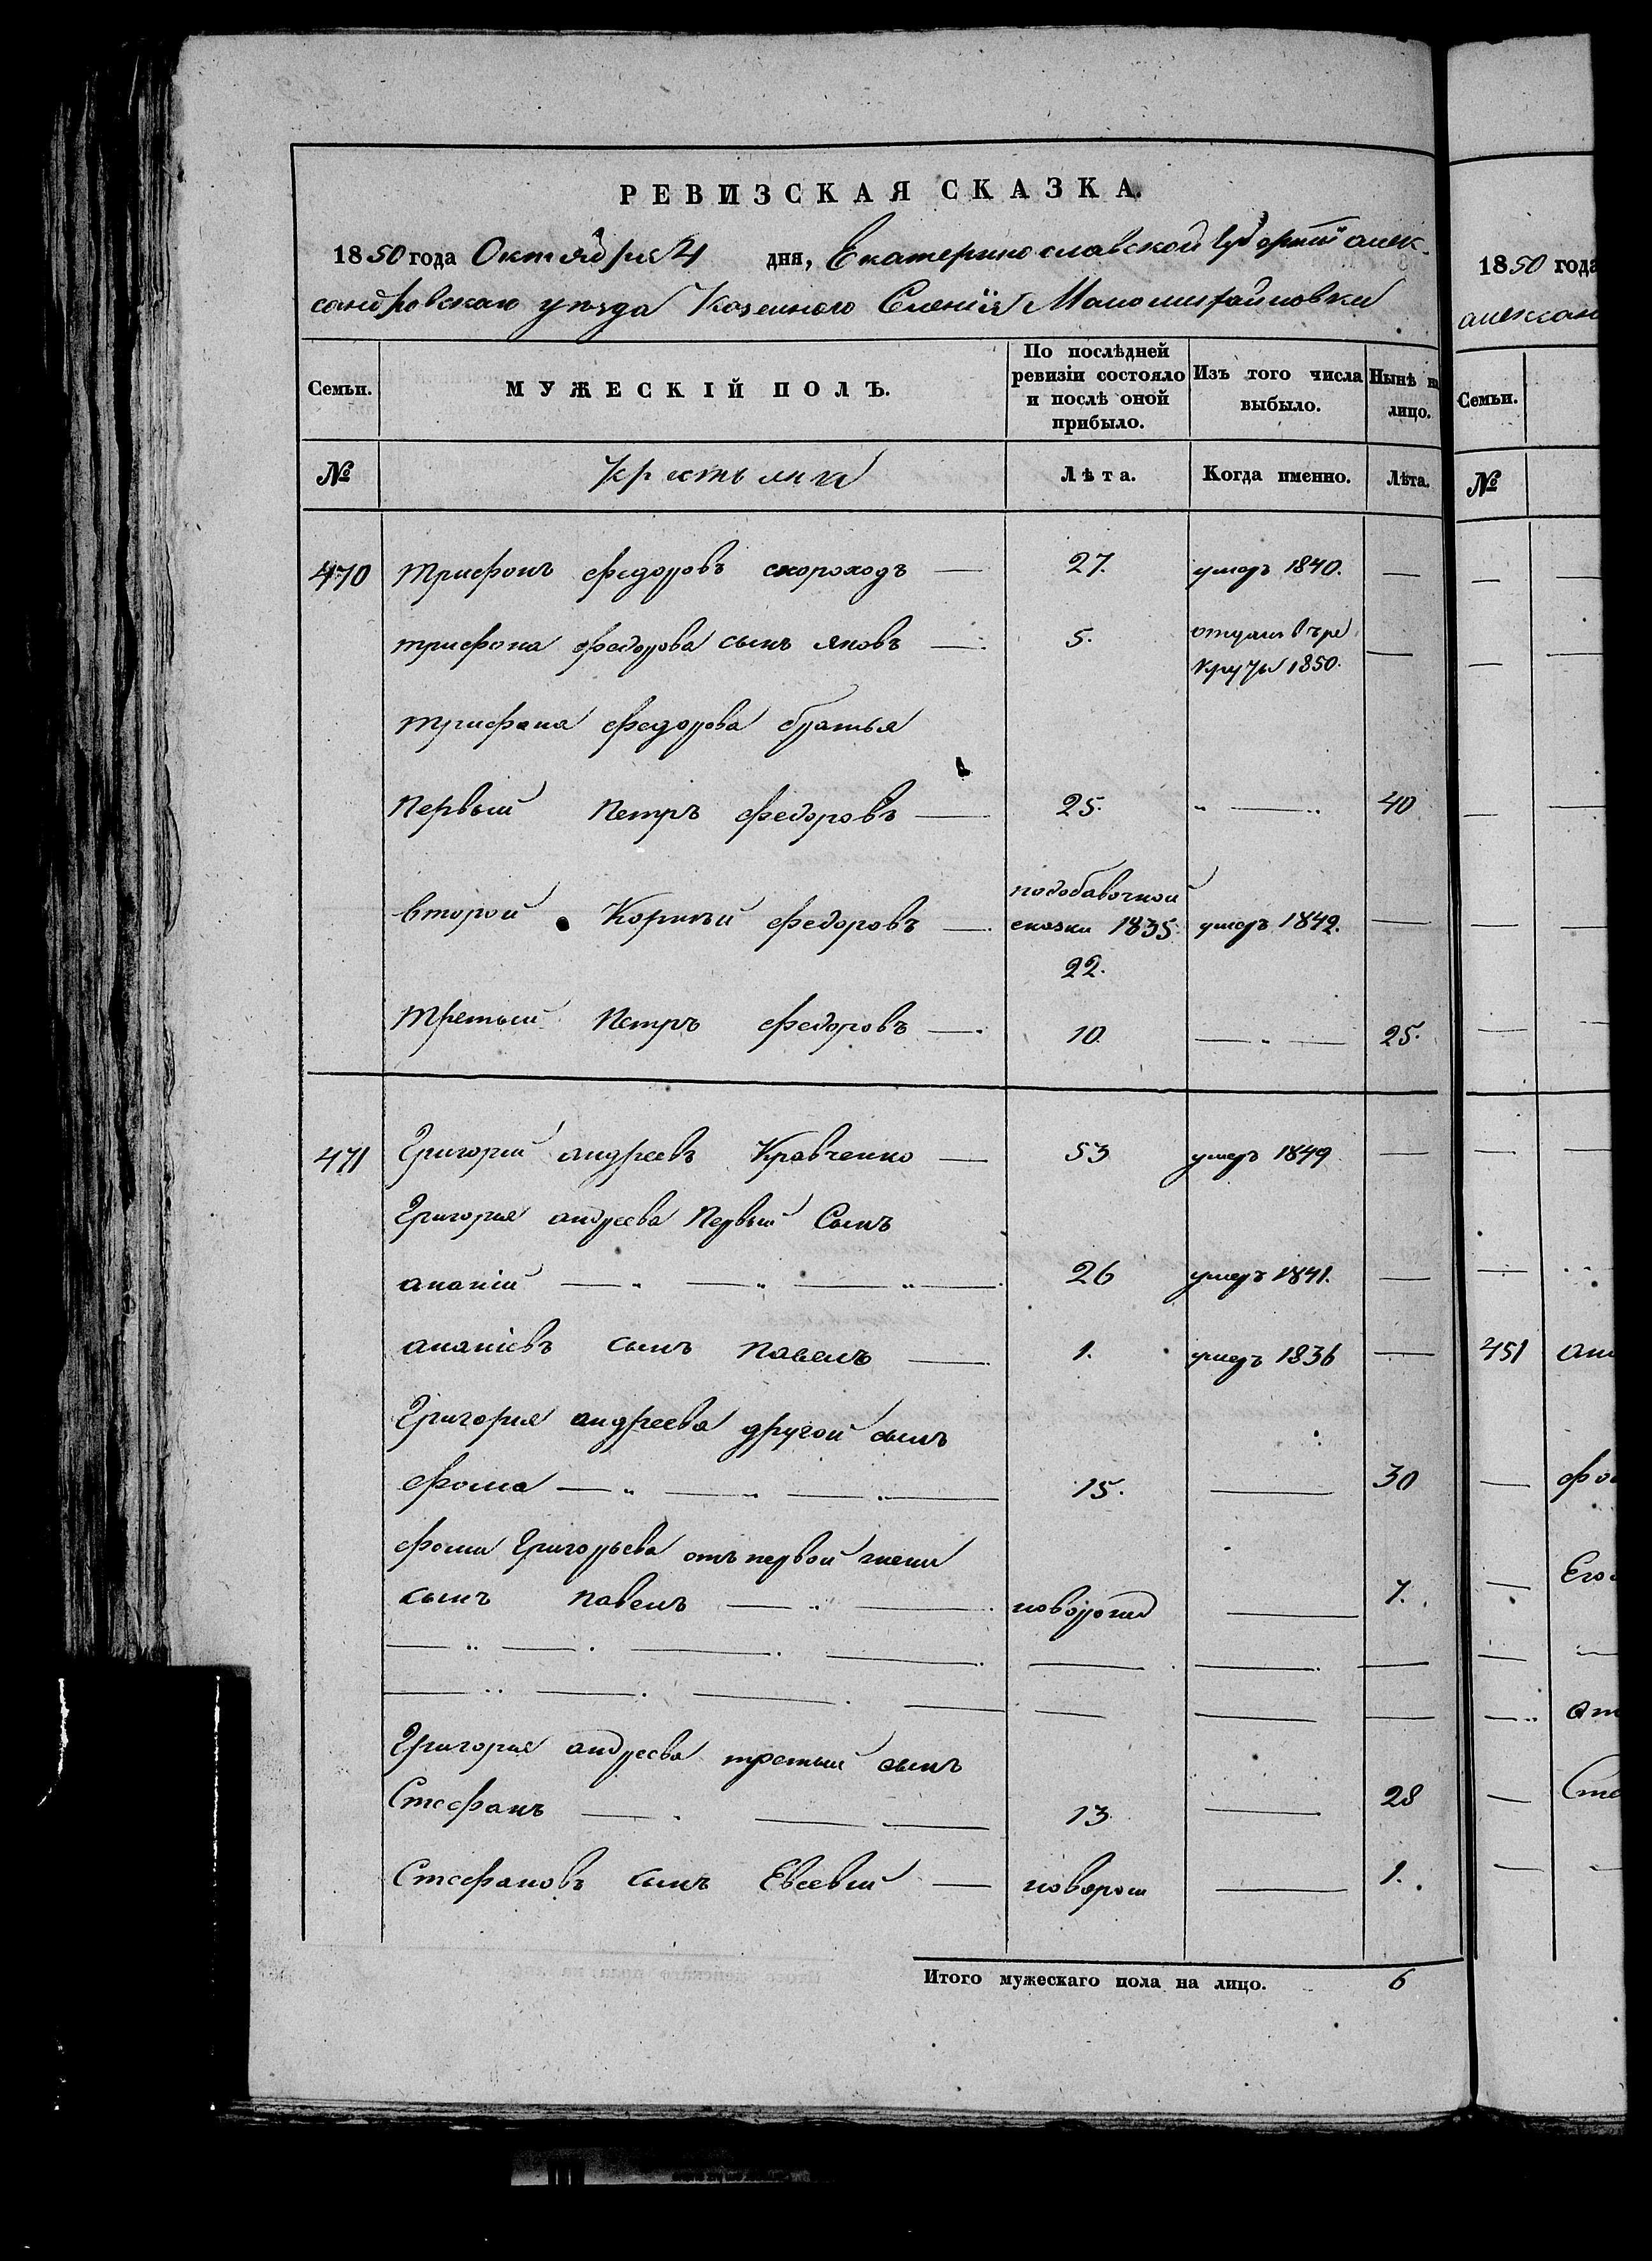 РЕВИЗСКАЯ СКАЗКА.
1850 года Октября 4 дня, Екатеринославской Губернии алек-
сандровскаго уезда Казенного Селенія Маломихайловки
Семьи. МУЖЕСКІЙ ПОЛЪ. По послѣдней ревизіи состояло и послѣ оной прибыло. Изъ того числа выбыло. Нынѣ на лицо.
№ Крестьяни Лѣта. Когда именно. Лѣта.
470 трифонъ федоровъ скороходъ — 27. умеръ 1840. —
трифона федорова сынъ яковъ — 5. отданъ в
рекруты 1850. —
трифона федорова братья
первый Петръ федоровъ — 25. " — 40
второй Корнѣй федоровъ — подобавочной
сказки 1835. умеръ 1842. —
22.
третьий Петръ федоровъ — 10. — " — 25.
471 Григорий андреевъ Кравченко — 53 умеръ 1849 —
Григория андреева Первый Сынъ
ананій — " — " — " — 26 умеръ 1841. —
ананіевъ сынъ Павелъ — 1. умеръ 1836 —
Григория андреева другой сынъ
фома — " — " — " — 15. — 30
фомы Григорьева отъ первой жены
сынъ павелъ — " — новорожд — 7.
Григория андреева третьий сынъ
Стефанъ — " — " — 13. — 28
Стефановъ сынъ Евсевий — новорож — 1.
Итого мужескаго пола на лицо. 6
1850 года
алексан
Семьи.
№
451 ан
фо
Его
от
Сте